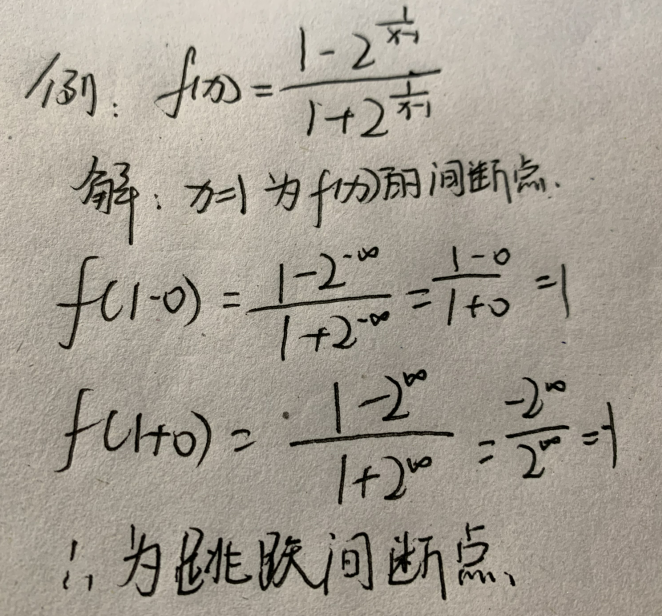 例: f(x) = \frac{1-2^{\frac{1}{x-1}}}{1+2^{\frac{1}{x-1}}}
解: x=1 为 f(x) 的间断点.
f(1-0) = \frac{1-2^{-∞}}{1+2^{-∞}} = \frac{1-0}{1+0} = 1
f(1+0) = \frac{1-2^{∞}}{1+2^{∞}} = \frac{-2^{∞}}{2^{∞}} = -1
∴ 为跳跃间断点、